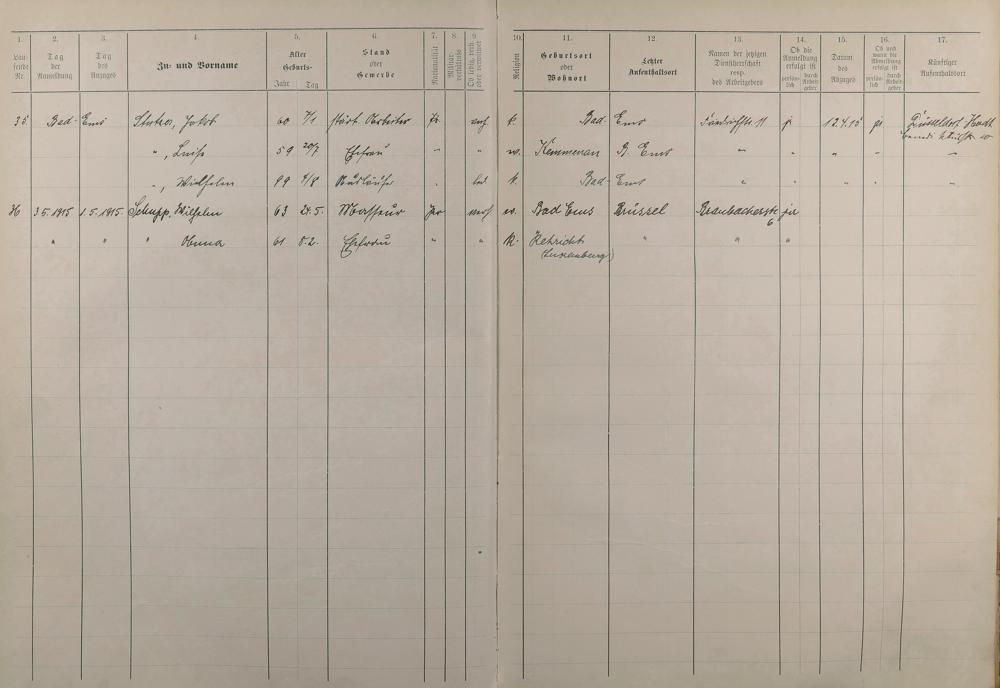 1. 2. 3. 4. 5. 6. 7. 8. 9. 10. 11. 12. 13. 14. 15. 16. 17.
Laufende Nr.
Tag der Anmeldung
Tag des Anzuges
Zu- und Vorname
Alter
Geburts-
Jahr Tag
Stand oder Gewerbe
Nationalität
Militärverhältnis
Ob ledig, verh. oder verwitwet
Religion
Geburtsort oder Wohnort
Letzter Aufenthaltsort
Namen der jetzigen Dienstherrschaft resp. des Arbeitgebers
Ob die Anmeldung erfolgt ist
persönlich durch Arbeitgeber
Datum des Abzuges
Ob und wann die Abmeldung erfolgt ist
persönlich durch Arbeitgeber
Künftiger Aufenthaltsort
35 Bad-Ems Jakob 60 7/1 städt. Arbeiter Pr. verh k. Bad-Ems 11 ja 12.4.15 ja Düsseldorf
" , Luise 59 20/7 Ehefrau " " ev. Kemmenau B. Ems " " " " "
" , Wilhelm 99 4/8 led k. Bad-Ems " " " " "
36 3.5.1915 1.5.1915. Schupp, Wilhelm 63 24.5. Masseur Pr verh ev. Bad Ems Brüssel Braubacherstr 6 ja
" " " 61 8.2. Ehefrau " " k. " " "
(Luxemburg)